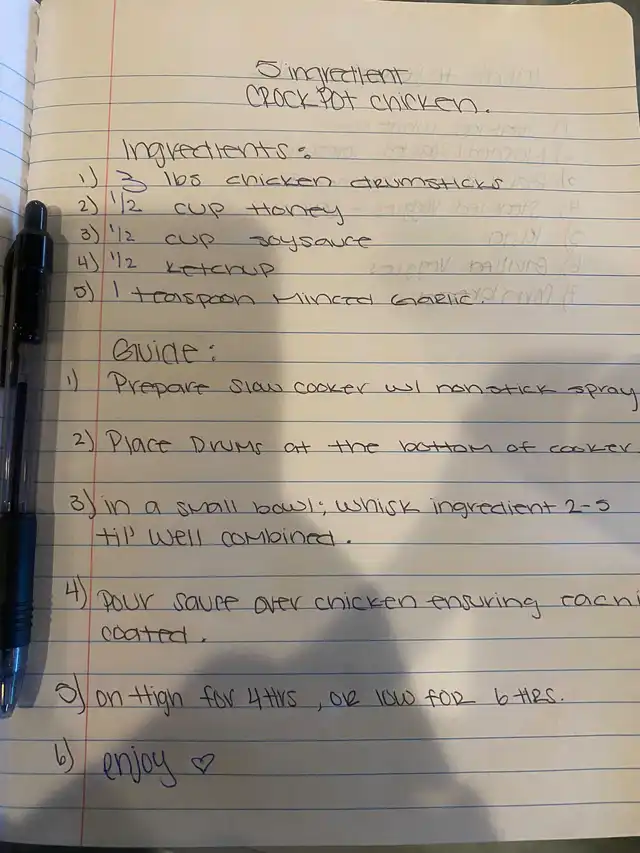 5 ingredient
Crock Pot chicken.
Ingredients:
1) 3 lbs chicken drumsticks
2) 1/2 cup Honey
3) 1/2 cup soysauce
4) 1/2 ketchup
5) 1 teaspoon Minced Garlic.
Guide:
1) Prepare slow cooker w/ nonstick spray
2) Place Drums at the bottom of cooker
3) in a small bowl; whisk ingredient 2-5
til' well combined.
4) Pour sauce over chicken ensuring each is
coated.
5) on High for 4 Hrs, or low for 6 Hrs.
6) enjoy ♡